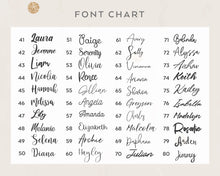 FONT CHART
41 Laura
42 Jerome
43 Liam
44 Nicolin
45 Hannah
46 Melissa
47 Lily
48 Melanie
49 Selena
50 Diana
51 Paige
52 Serenity
53 Olivia
54 Renee
55 Gillian
56 Angela
57 Amanda
58 Elizabeth
59 Archie
60 Hayley
61 Avery
62 Sally
63 Vanessa
64
65 Shannon
66 Greyson
67 Charlotte
68 Malcolm
69 Daphene
70 Julian
71 Belinda
72 Alyssa
73 Aschur
74 Keith
75 Kailey
76 Isabella
77 Zachary
78 Rosalie
79 Arden
80 Jenny